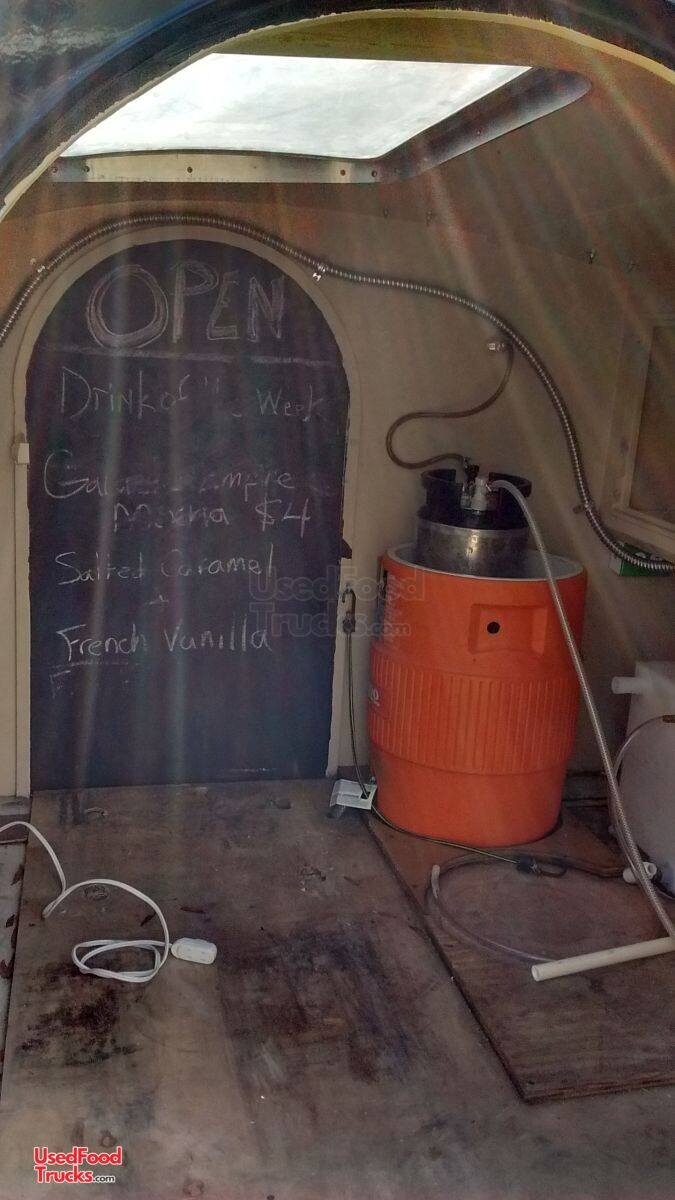 OPEN
Drink of Week
Vampire
Mocha $4
Salted Caramel
+
French Vanilla
F
UsedFood
Trucks.com
UsedFood
Trucks.com